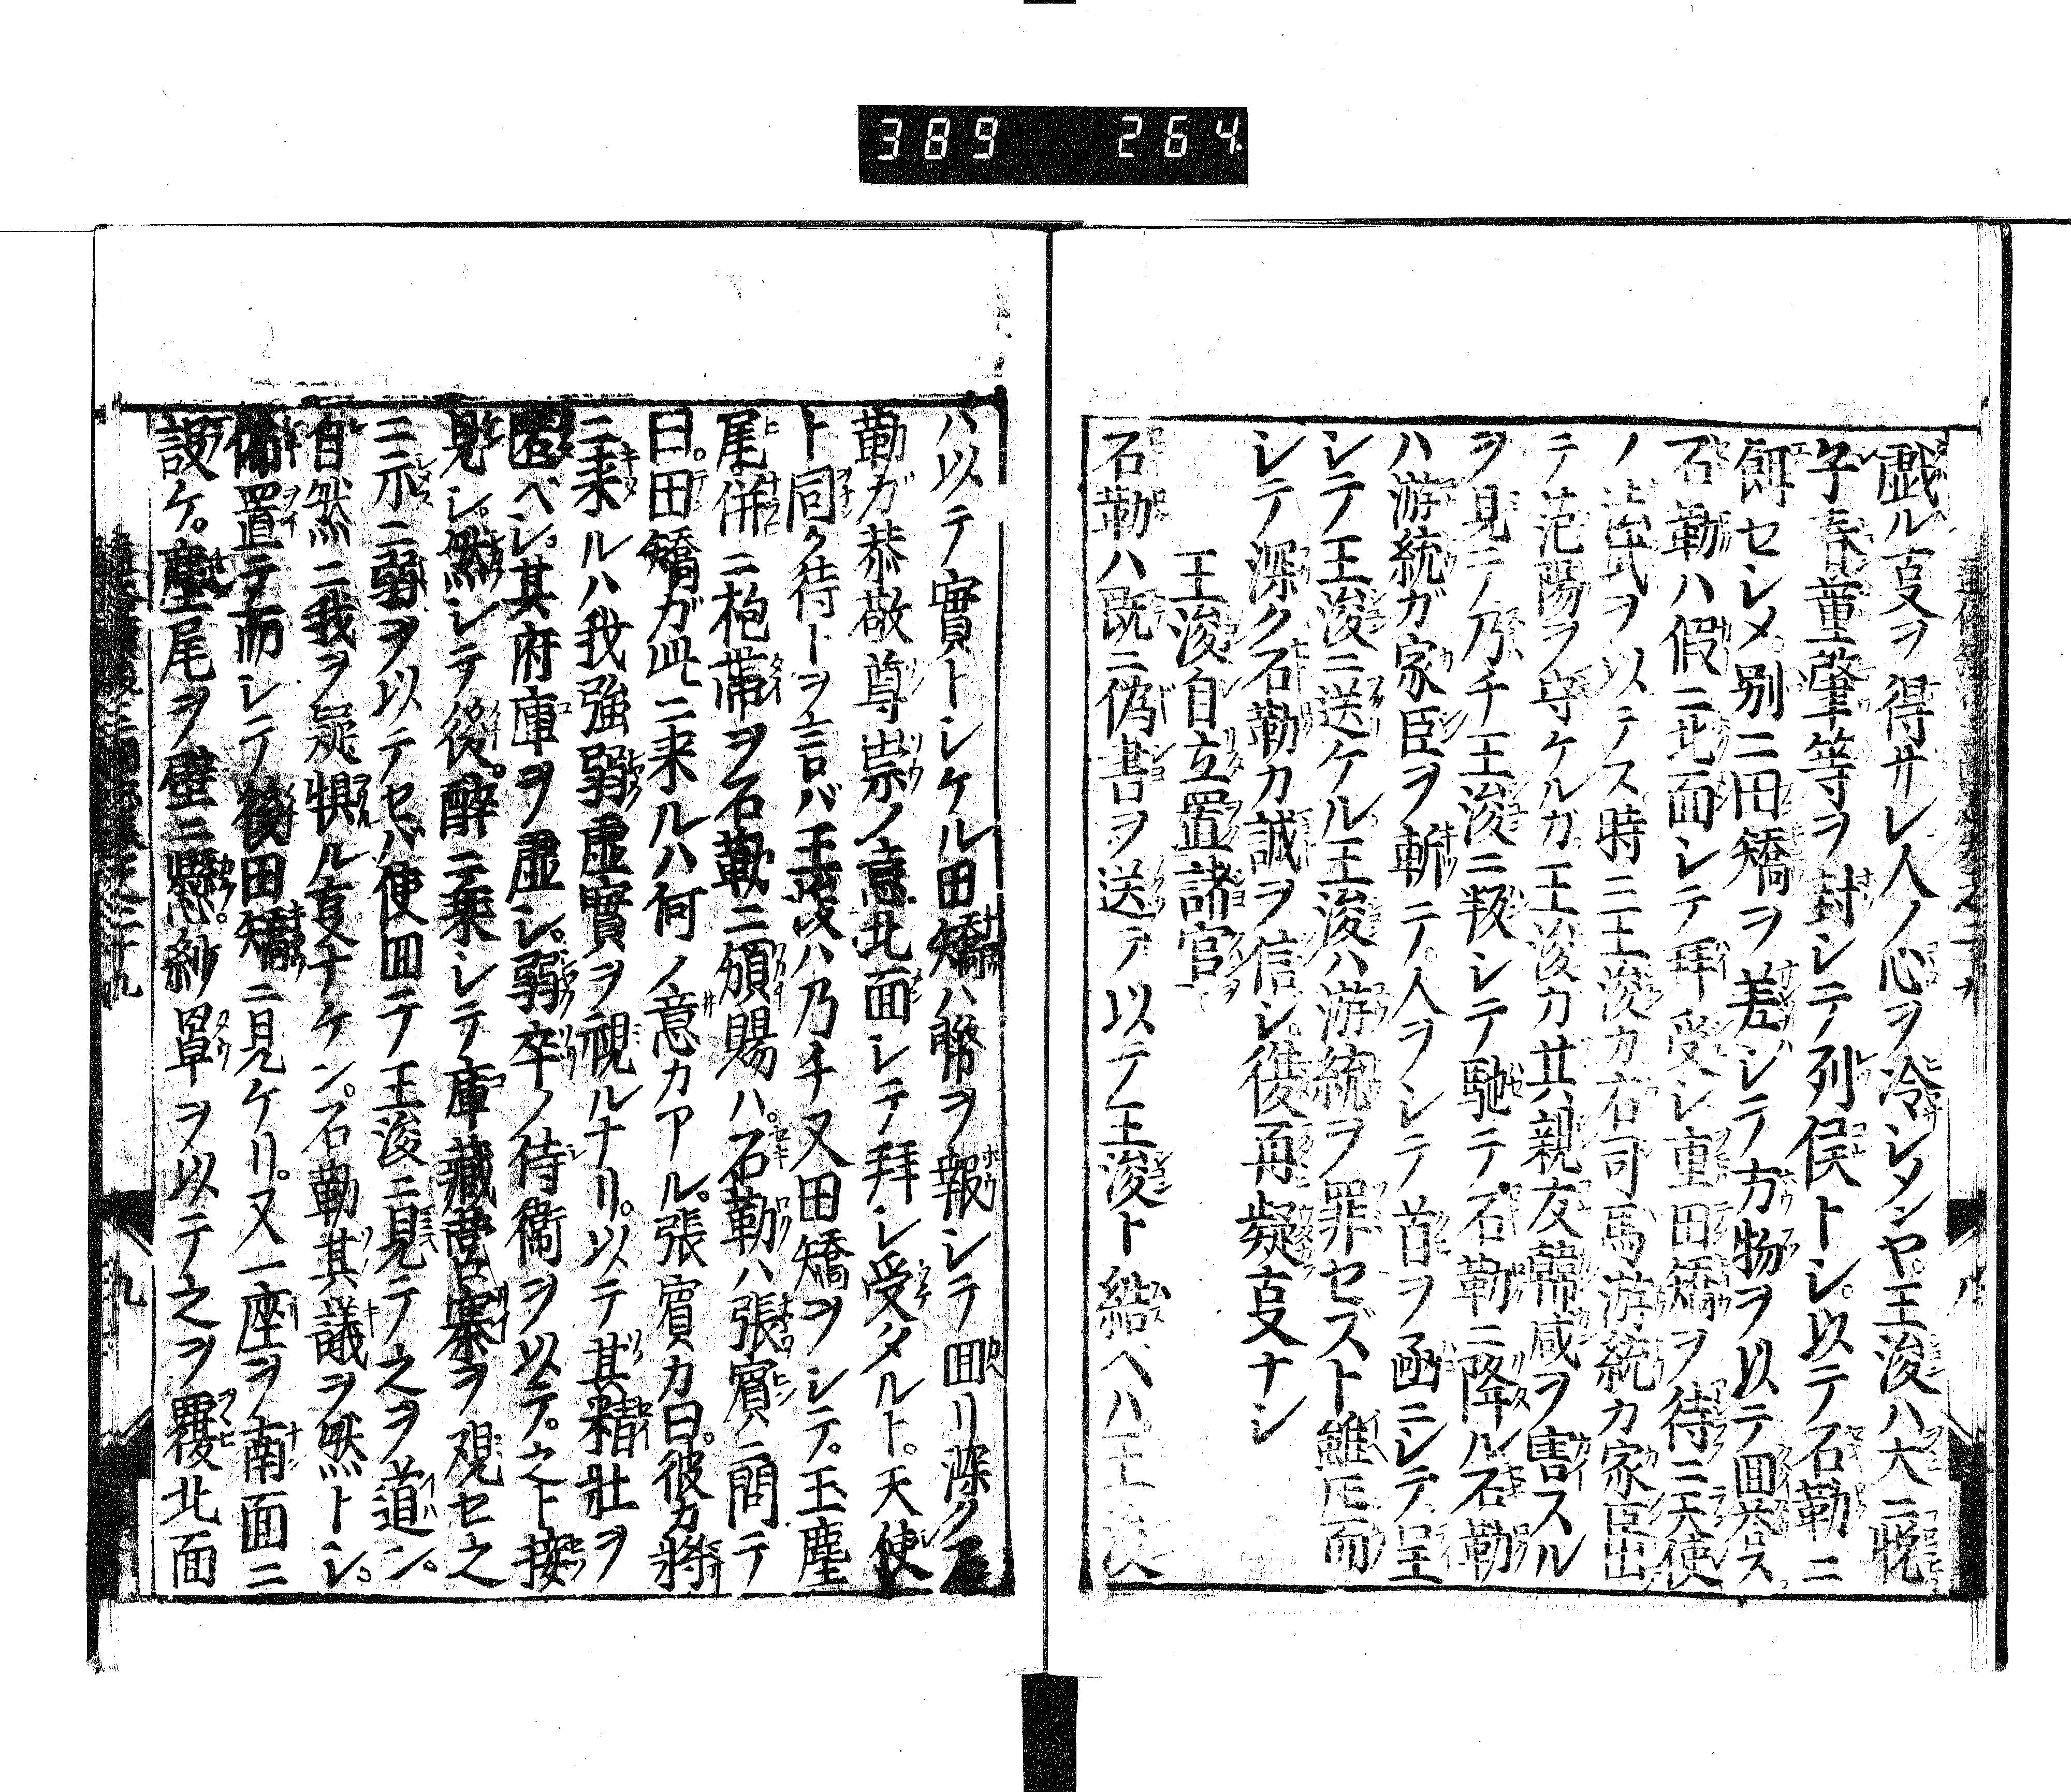 389 264
戯ル亊ヲ得サレ人ノ心ヲ冷シメンヤ王浚ハ大ニ悦
子春董肇等ヲ封シテ列侯トシ以テ石勒ニ
餌セシメ別ニ田矯ヲ差シテ方物ヲ以テ回答ス
石勒ハ假ニ北面シテ拜受シ重田矯ヲ待ニ天使
ノ禮ヲ以テス時ニ王浚カ右司馬游統カ家臣出
テ范陽ヲ守ケルカ王浚カ其親友韓咸ヲ害スル
ヲ見ニノ乃チ王浚ニ叛シテ馳テ石勒ニ降ル石勒
ハ游統ガ家臣ヲ斬ニテ人ヲシテ首ヲ函ニシテ呈
シテ王浚ニ送ケル王浚ハ游統ヲ罪セズト雖𪜈而
シテ深ク石勒カ誠ヲ信シ復再疑亊ナシ
王浚自立置諸官
石勒ハ既ニ偽書ヲ送テ以テ王浚ト結ベハ王浚
ハ以テ實トシケル田矯ハ幣ヲ報シテ回リ深ク石
勒ガ恭敬尊崇ノ意北面シテ拜シ受タルト天使
ト同ク待トヲ言バ王浚ハ乃チ又田矯ヲシテ玉塵
尾併ニ袍帶ヲ石勒ニ頒賜ハ石勒ハ張賓ニ問テ
曰田矯ガ此ニ来ルハ何ノ意カアル張賓カ曰彼カ將
ニ来ルハ我強弱虚實ヲ視ルナリ以テ其精壮ヲ
匿ベシ其府庫ヲ虚シ弱卒ノ侍衛ヲ以テ之ト接
見シ然シテ後醉ニ乘シテ庫藏營寨ヲ观セ之
ニ示ニ弱ヲ以テセバ便回テ王浚ニ見テ之ヲ道ン
自然ニ我ヲ疑懼ル亊ナケン石勒其議ヲ然トシ
備置テ而シテ後田矯ニ見ケリ又一座ヲ南面ニ
設ケ塵尾ヲ壁ニ懸紗罩ヲ以テ之ヲ覆北面
九